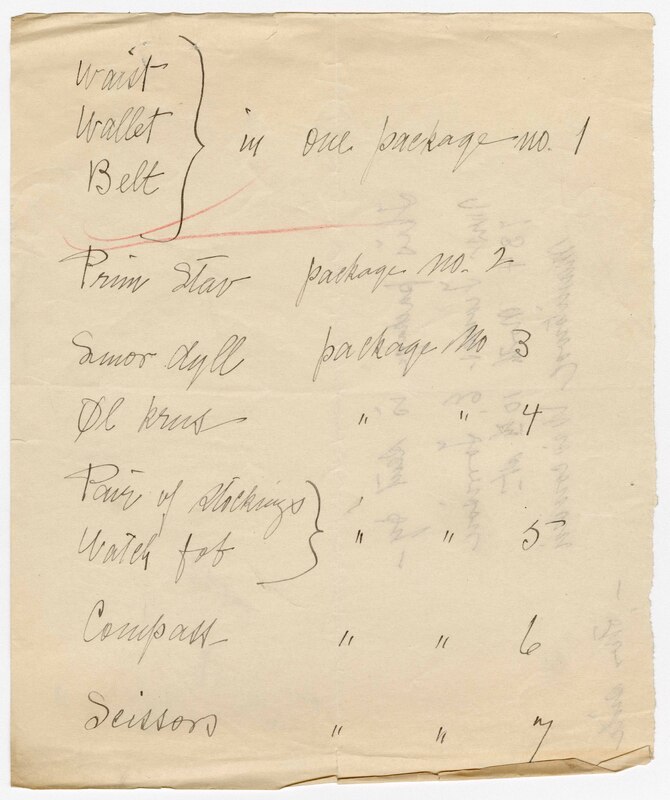 Waist
Wallet
Belt
in one package no. 1
Prim Stav package no. 2
Smor dyll package No 3
Øl krus " " 4
Pair of stockings
Watch fob " " 5
Compass " " 6
Scissors " " 7